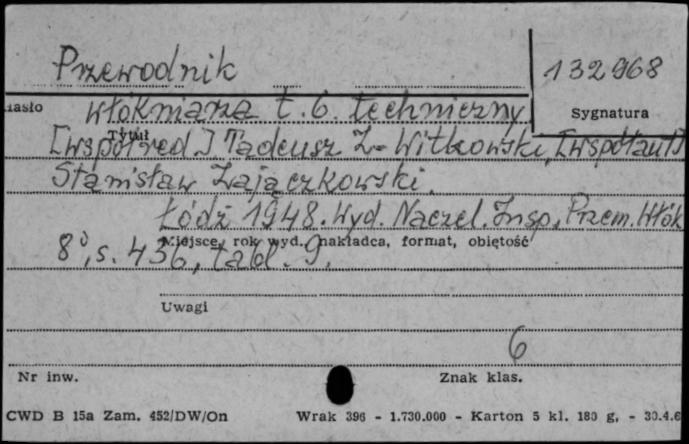 Przewodnik
132968
Hasło
włókniarza t. 6. techniczny
Sygnatura
Tytuł
[współred.] Tadeusz Z. Witkowski, [współaut.]
Stanisław Zajączkowski.
Łódź 1948. Wyd. Naczel. Insp. Przem. Włók
Miejsce, rok wyd., nakładca, format, objętość
8°, s. 436, tabl. 9.
Uwagi
6
Nr inw.
Znak klas.
CWD B 15a Zam. 452/DW/On Wrak 396 - 1.730.000 - Karton 5 kl. 180 g, - 30.4.6